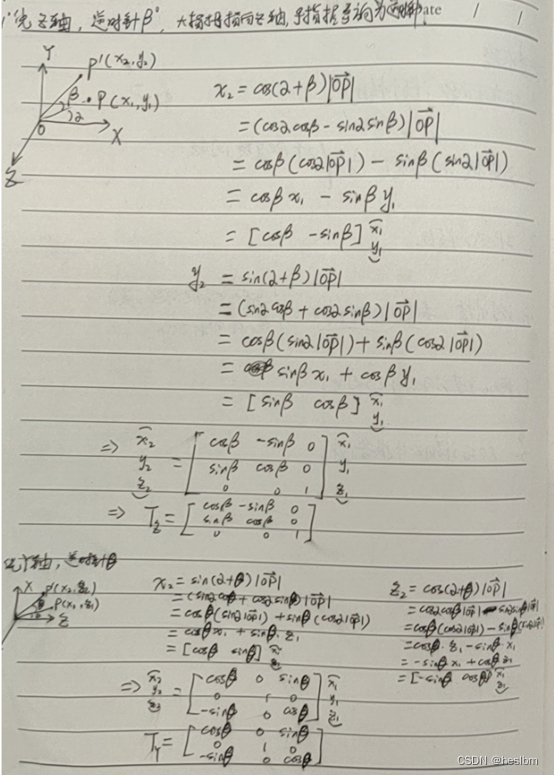 "绕Z轴，逆时针β°，大拇指指向Z轴，手指握手方向为逆时针。 ate / /
Y
P'(x₂, y₂)
β P(x₁, y₁)
α
O X
Z
x₂ = cos(α+β)|OP|
= (cosαcosβ - sinαsinβ)|OP|
= cosβ(cosα|OP|) - sinβ(sinα|OP|)
= cosβ x₁ - sinβ y₁
= [cosβ -sinβ] x₁
y₁
y₂ = sin(α+β)|OP|
= (sinαcosβ + cosαsinβ)|OP|
= cosβ(sinα|OP|) + sinβ(cosα|OP|)
= sinβ x₁ + cosβ y₁
= [sinβ cosβ] x₁
y₁
=> x₂ cosβ -sinβ 0 x₁
y₂ = sinβ cosβ 0 y₁
z₂ 0 0 1 z₁
=> T_Z = cosβ -sinβ 0
sinβ cosβ 0
0 0 1
绕Y轴，逆时针β
X P'(x₂, z₂)
P(x₁, z₁)
Z
x₂ = sin(α+β)|OP|
= (sinαcosβ + cosαsinβ)|OP|
= cosβ(sinα|OP|) + sinβ(cosα|OP|)
= cosβ x₁ + sinβ z₁
= [cosβ sinβ] x₁
z₁
z₂ = cos(α+β)|OP|
= cosαcosβ|OP| - sinαsinβ|OP|
= cosβ(cosα|OP|) - sinβ(sinα|OP|)
= cosβ z₁ - sinβ x₁
= -sinβ x₁ + cosβ z₁
= [-sinβ cosβ] x₁
z₁
=> x₂ cosβ 0 sinβ x₁
y₂ = 0 1 0 y₁
z₂ -sinβ 0 cosβ z₁
T_Y = cosβ 0 sinβ
0 1 0
-sinβ 0 cosβ
CSDN @heslbm